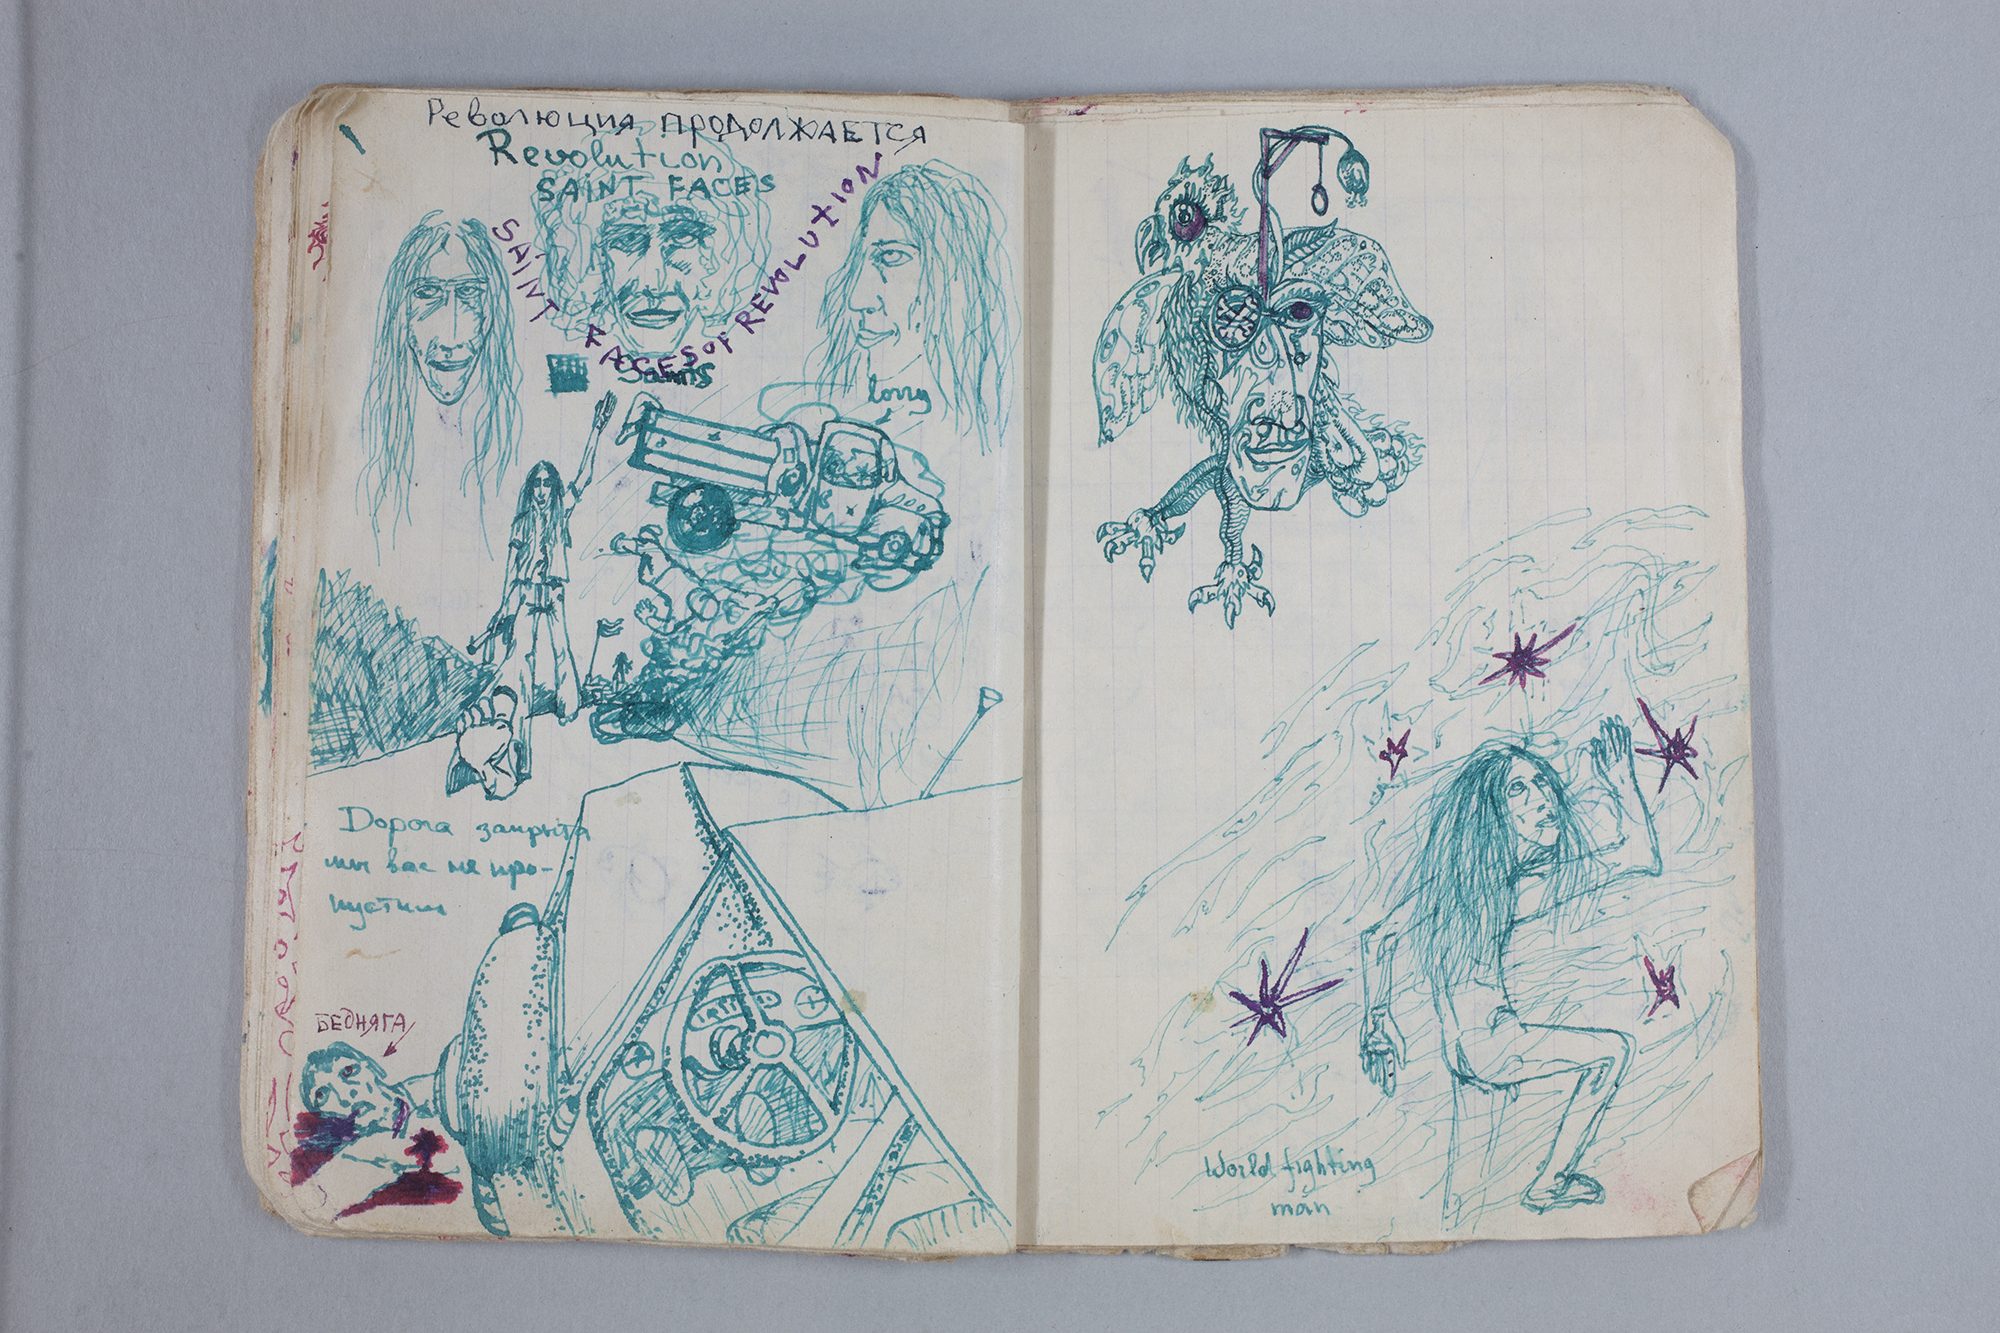 Революция ПРОДОЛЖАЕТСЯ
Revolution
SAINT FACES
SAINT FACES OF REVOLUTION
Saints
lorry
Дорога закрыта
мы вас не про-
пустим
БЕДНЯГА
World fighting
man